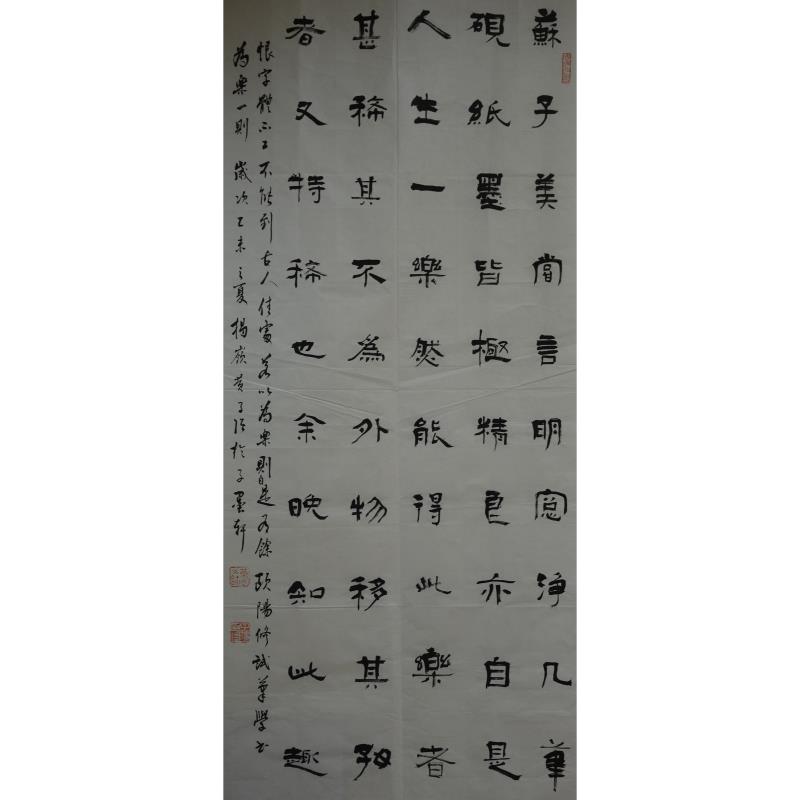 蘇子美嘗言明窓淨几筆
硯紙墨皆極精良亦自是
人生一樂然能得此樂者
甚稀其不為外物移其好
者又特稀也余晚知此趣
恨字體不工不能到古人佳處若以為樂則自是有餘 歐陽修試筆學書
為樂一則 歲次乙未之夏 揚嶺黃子於子墨軒